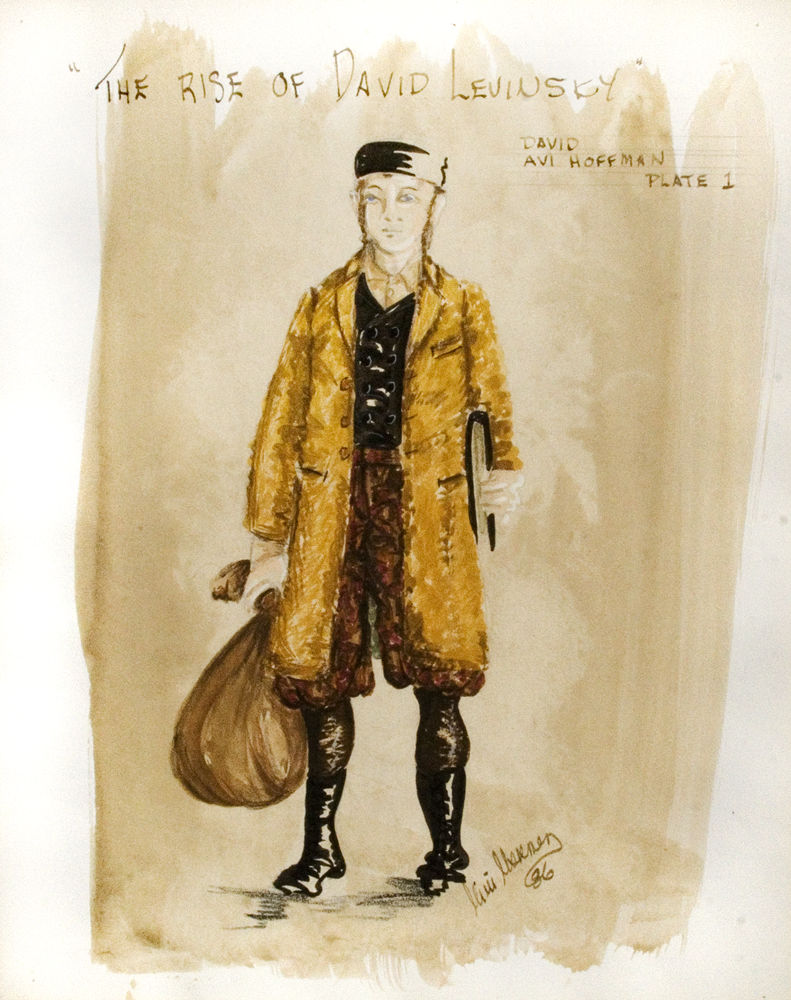 "THE RISE OF DAVID LEVINSKY"
DAVID
AVI HOFFMAN
PLATE 1
86